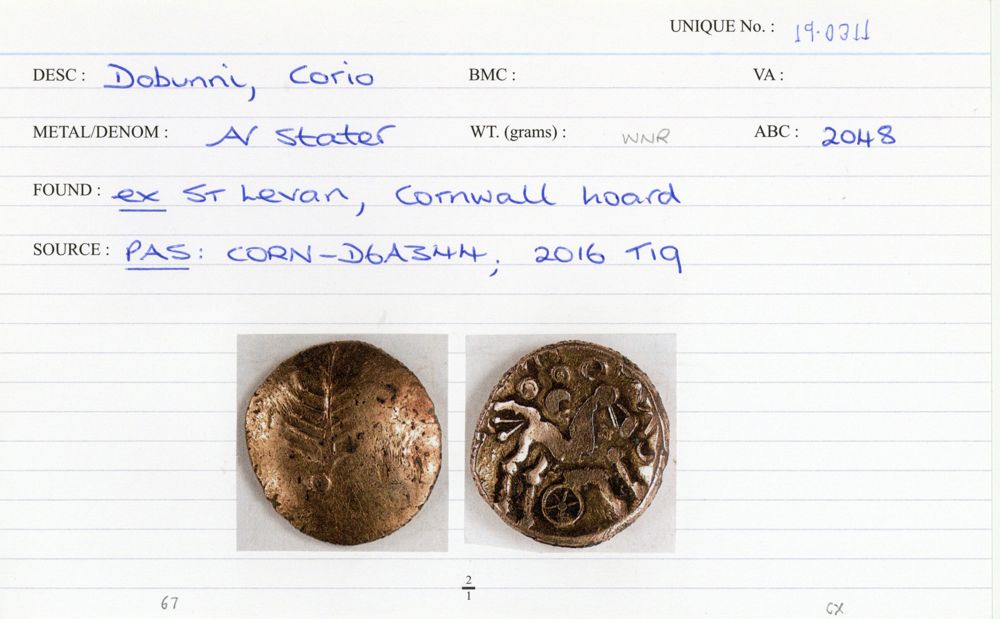 UNIQUE No. : 19.0311
DESC : Dobunni, Corio BMC : VA :
METAL/DENOM : AV Stater WT. (grams) : WNR ABC : 2048
FOUND : ex St Levan, Cornwall hoard
SOURCE : PAS: CORN-D6A344; 2016 T19
2
1
67 CX